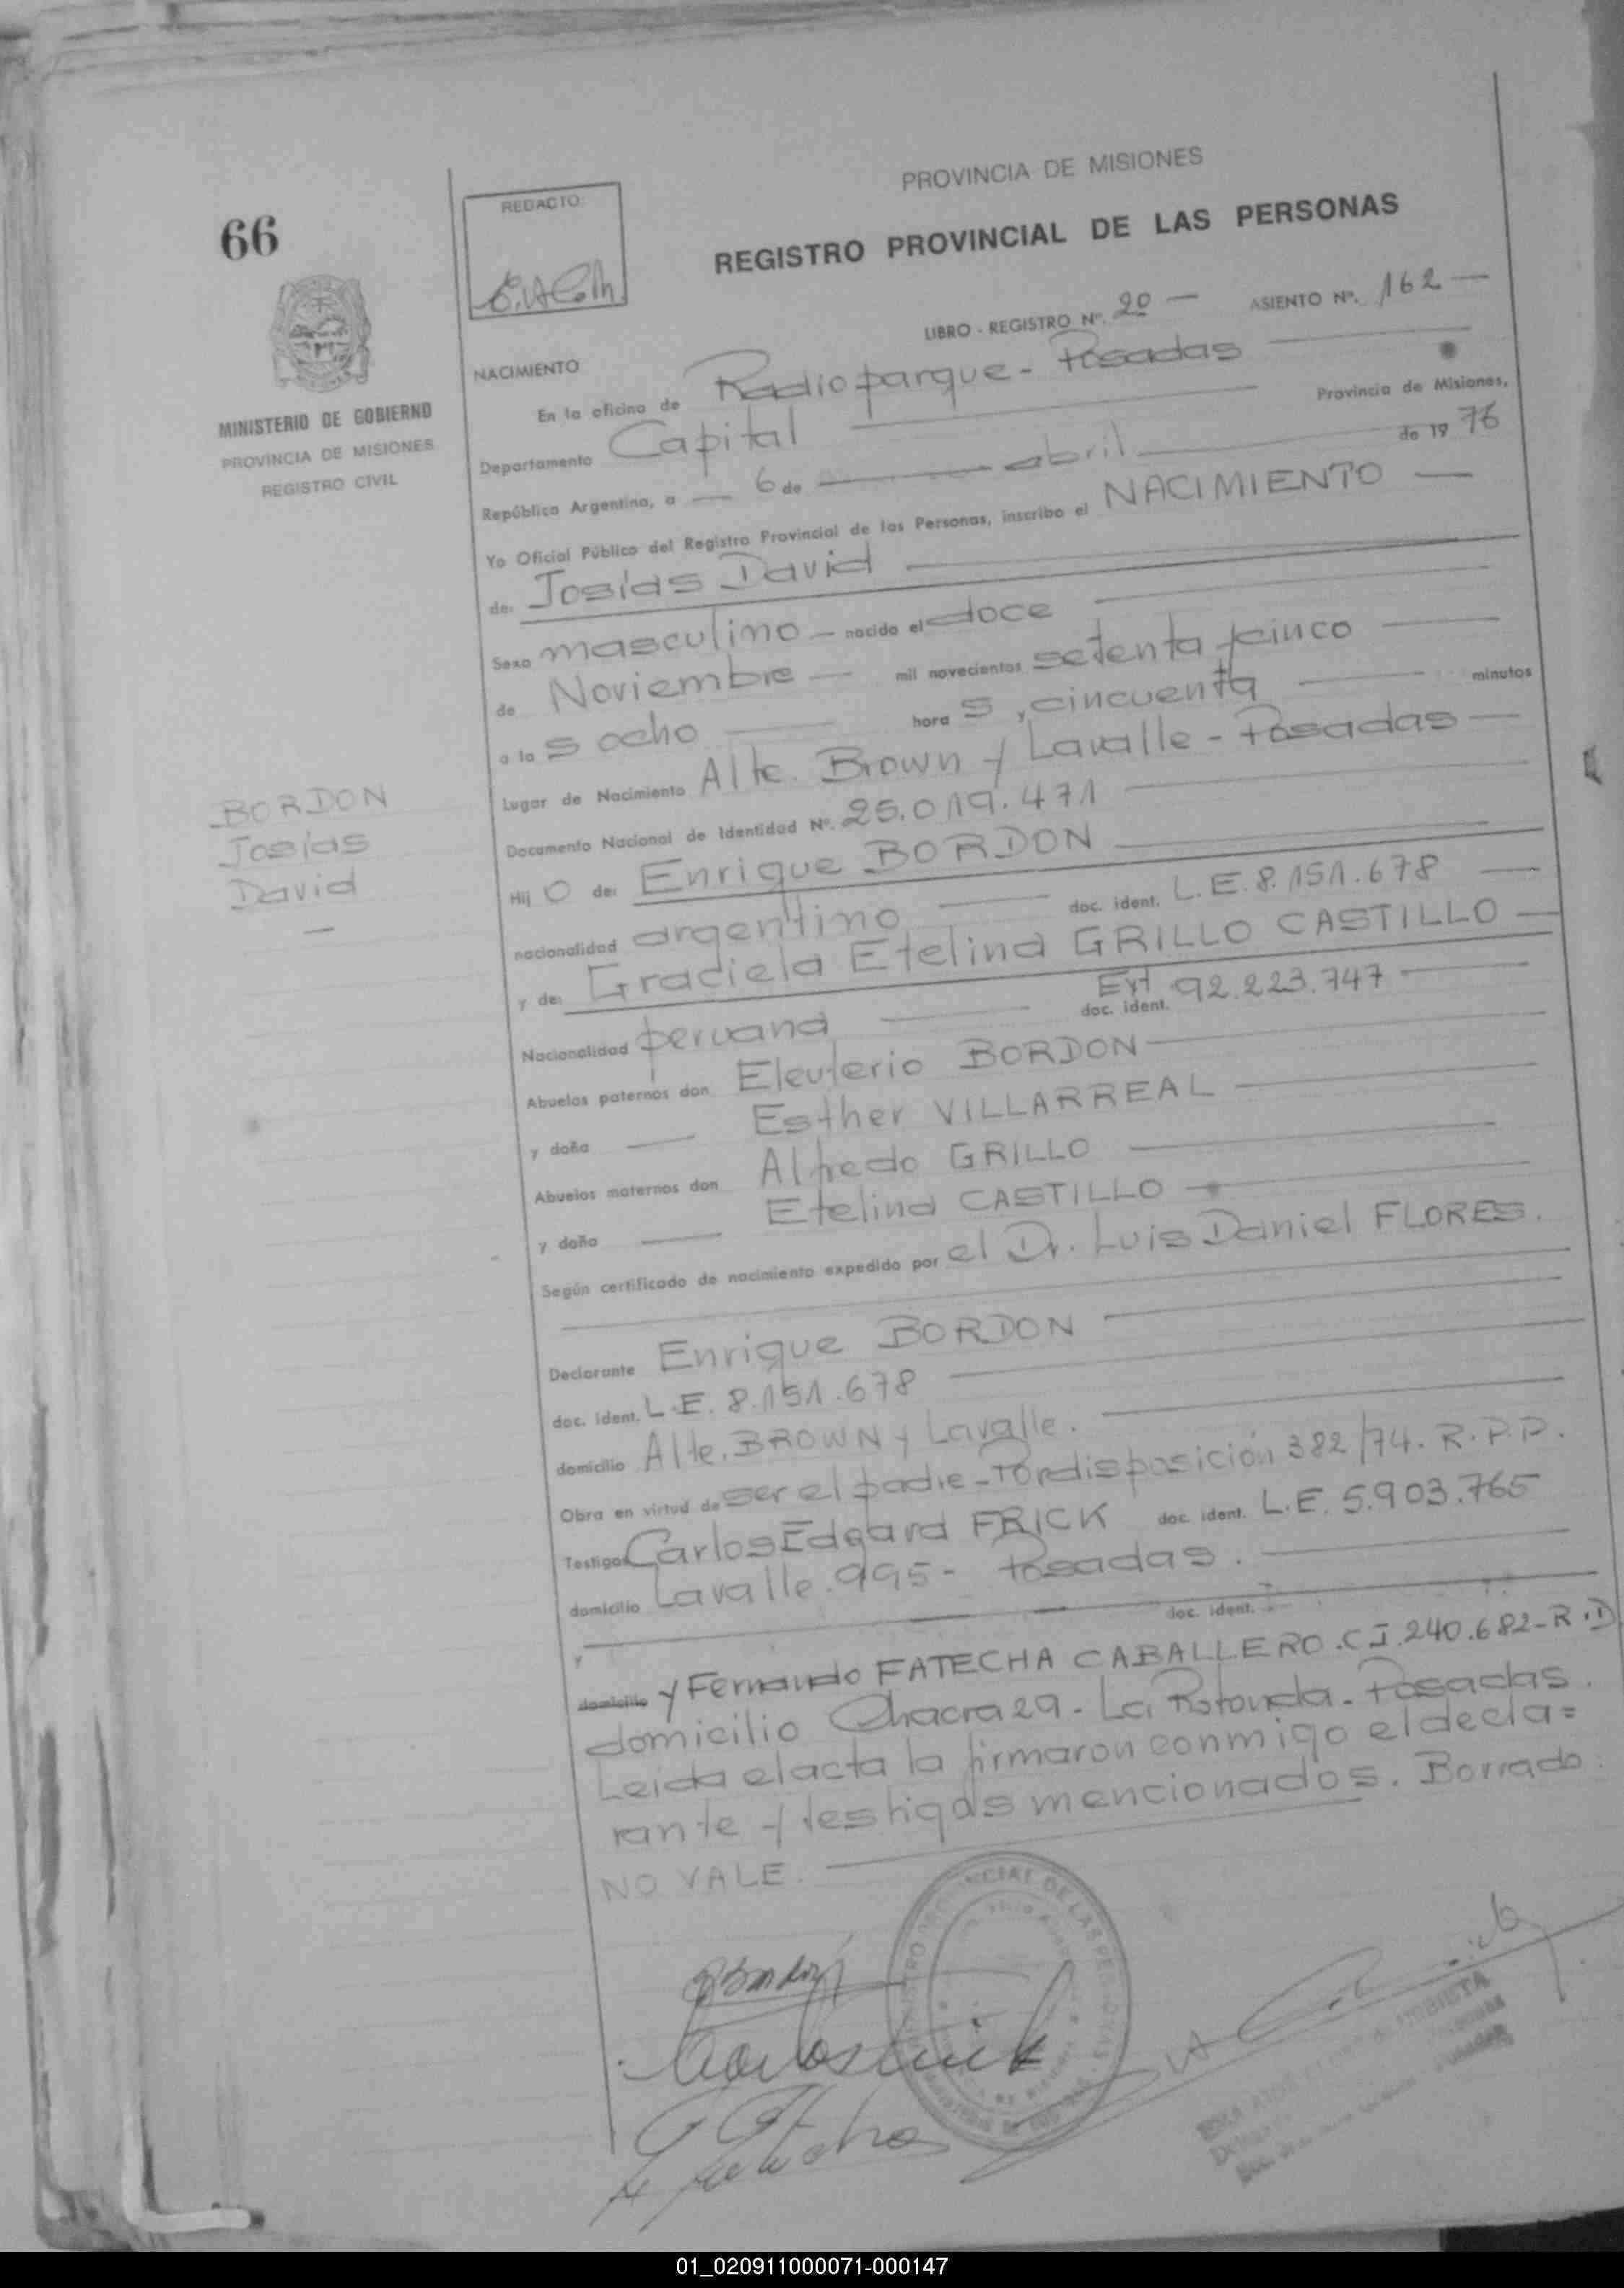 66
MINISTERIO DE GOBIERNO
PROVINCIA DE MISIONES
REGISTRO CIVIL
BORDON
Josías
David
REDACTO:
PROVINCIA DE MISIONES
REGISTRO PROVINCIAL DE LAS PERSONAS
LIBRO - REGISTRO Nº. 20 — ASIENTO Nº. 162 —
NACIMIENTO
En la oficina de Radioparque - Posadas
Departamento Capital Provincia de Misiones,
República Argentina, a — 6 de — abril de 19 76
Yo Oficial Público del Registro Provincial de las Personas, inscribo el NACIMIENTO —
de: Josías David
Sexo masculino — nacido el doce
de Noviembre — mil novecientos setenta y cinco
a la s ocho hora s, cincuenta minutos
Lugar de Nacimiento Alte. Brown y Lavalle - Posadas —
Documento Nacional de Identidad Nº. 25.019.471
Hij o de: Enrique BORDON
nacionalidad argentino doc. ident. L.E. 8.151.678
y de: Graciela Etelina GRILLO CASTILLO —
Nacionalidad peruana doc. ident. Ext 92.223.747
Abuelos paternos don Eleuterio BORDON
y doña — Esther VILLARREAL
Abuelos maternos don Alfredo GRILLO
y doña — Etelina CASTILLO
Según certificado de nacimiento expedido por el Dr. Luis Daniel FLORES.
Declarante Enrique BORDON
doc. ident. L.E. 8.151.678
domicilio Alte. BROWN y Lavalle.
Obra en virtud de ser el padre - Por disposición 382/74. R.P.P.
Testigos Carlos Edgard FRICK doc. ident. L.E. 5.903.765
domicilio Lavalle. 995 - Posadas.
y doc. ident.
domicilio y Fernando FATECHA CABALLERO. C.I. 240.682 - R.D
domicilio Chacra 29 - La Rotonda - Posadas.
Leida el acta la firmaron conmigo el decla=
rante y testigos mencionados. Borrado:
NO VALE.
01_020911000071-000147